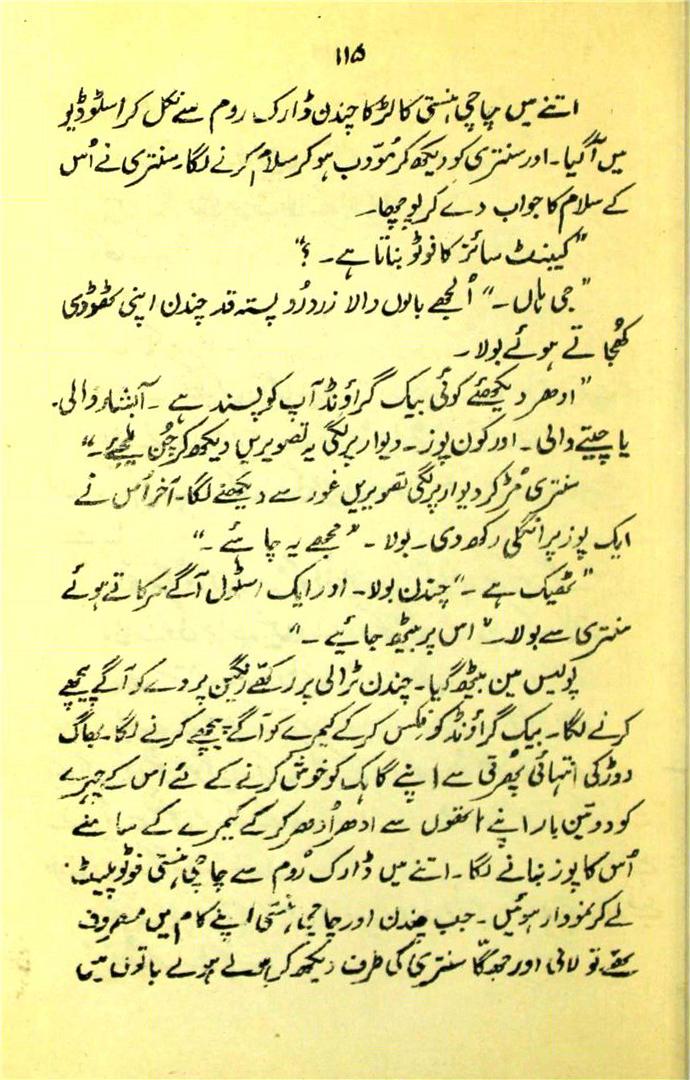 ۱۱۵
اتنے میں چاچی ہنستی کا لڑکا چندن ڈارک روم سے نکل کر اسٹوڈیو
میں آ گیا۔ اور سنتری کو دیکھ کر مُودب ہو کر سلام کرنے لگا۔ سنتری نے اُس
کے سلام کا جواب دے کر پوچھا۔
"کیبنٹ سائز کا فوٹو بناتا ہے۔ ؟"
"جی ہاں۔" اُلجھے بالوں والا زرد رُو پستہ قد چندن اپنی ٹھوڈی
کھُجاتے ہوئے بولا۔
"ادھر دیکھئے کوئی بیک گراؤنڈ آپ کو پسند ہے۔ آبشار والی۔
یا چیتے والی۔ اور کون پوز۔ دیوار پر لگی یہ تصویریں دیکھ کر چُن لیجئے۔"
سنتری مُڑ کر دیوار پر لگی تصویریں غور سے دیکھنے لگا۔ آخر اُس نے
ایک پوز پر انگلی رکھ دی۔ بولا۔ "مجھے یہ چاہئے۔"
"ٹھیک ہے۔" چندن بولا۔ اور ایک اسٹول آگے سرکاتے ہوئے
سنتری سے بولا۔ "اس پر بیٹھ جائیے۔"
پولیس مین بیٹھ گیا۔ چندن ٹرالی پر رکھے رنگین پردے کو آگے پیچھے
کرنے لگا۔ بیک گراؤنڈ کو فکس کر کے کیمرے کو آگے پیچھے کرنے لگا۔ بھاگ
دوڑ کی انتہائی پھُرتی سے اپنے گاہک کو خوش کرنے کے لئے اُس کے چہرے
کو دو تین بار اپنے ہاتھوں سے ادھر اُدھر کر کے کیمرے کے سامنے
اُس کا پوز بنانے لگا۔ اتنے میں ڈارک رُوم سے چاچی ہنستی فوٹو پلیٹ
لے کر نمودار ہوئیں۔ جب چندن اور چاچی ہنستی اپنے کام میں مصروف
تھے تو لالی اور جگا سنتری کی طرف دیکھ کر ہولے ہولے باتوں میں